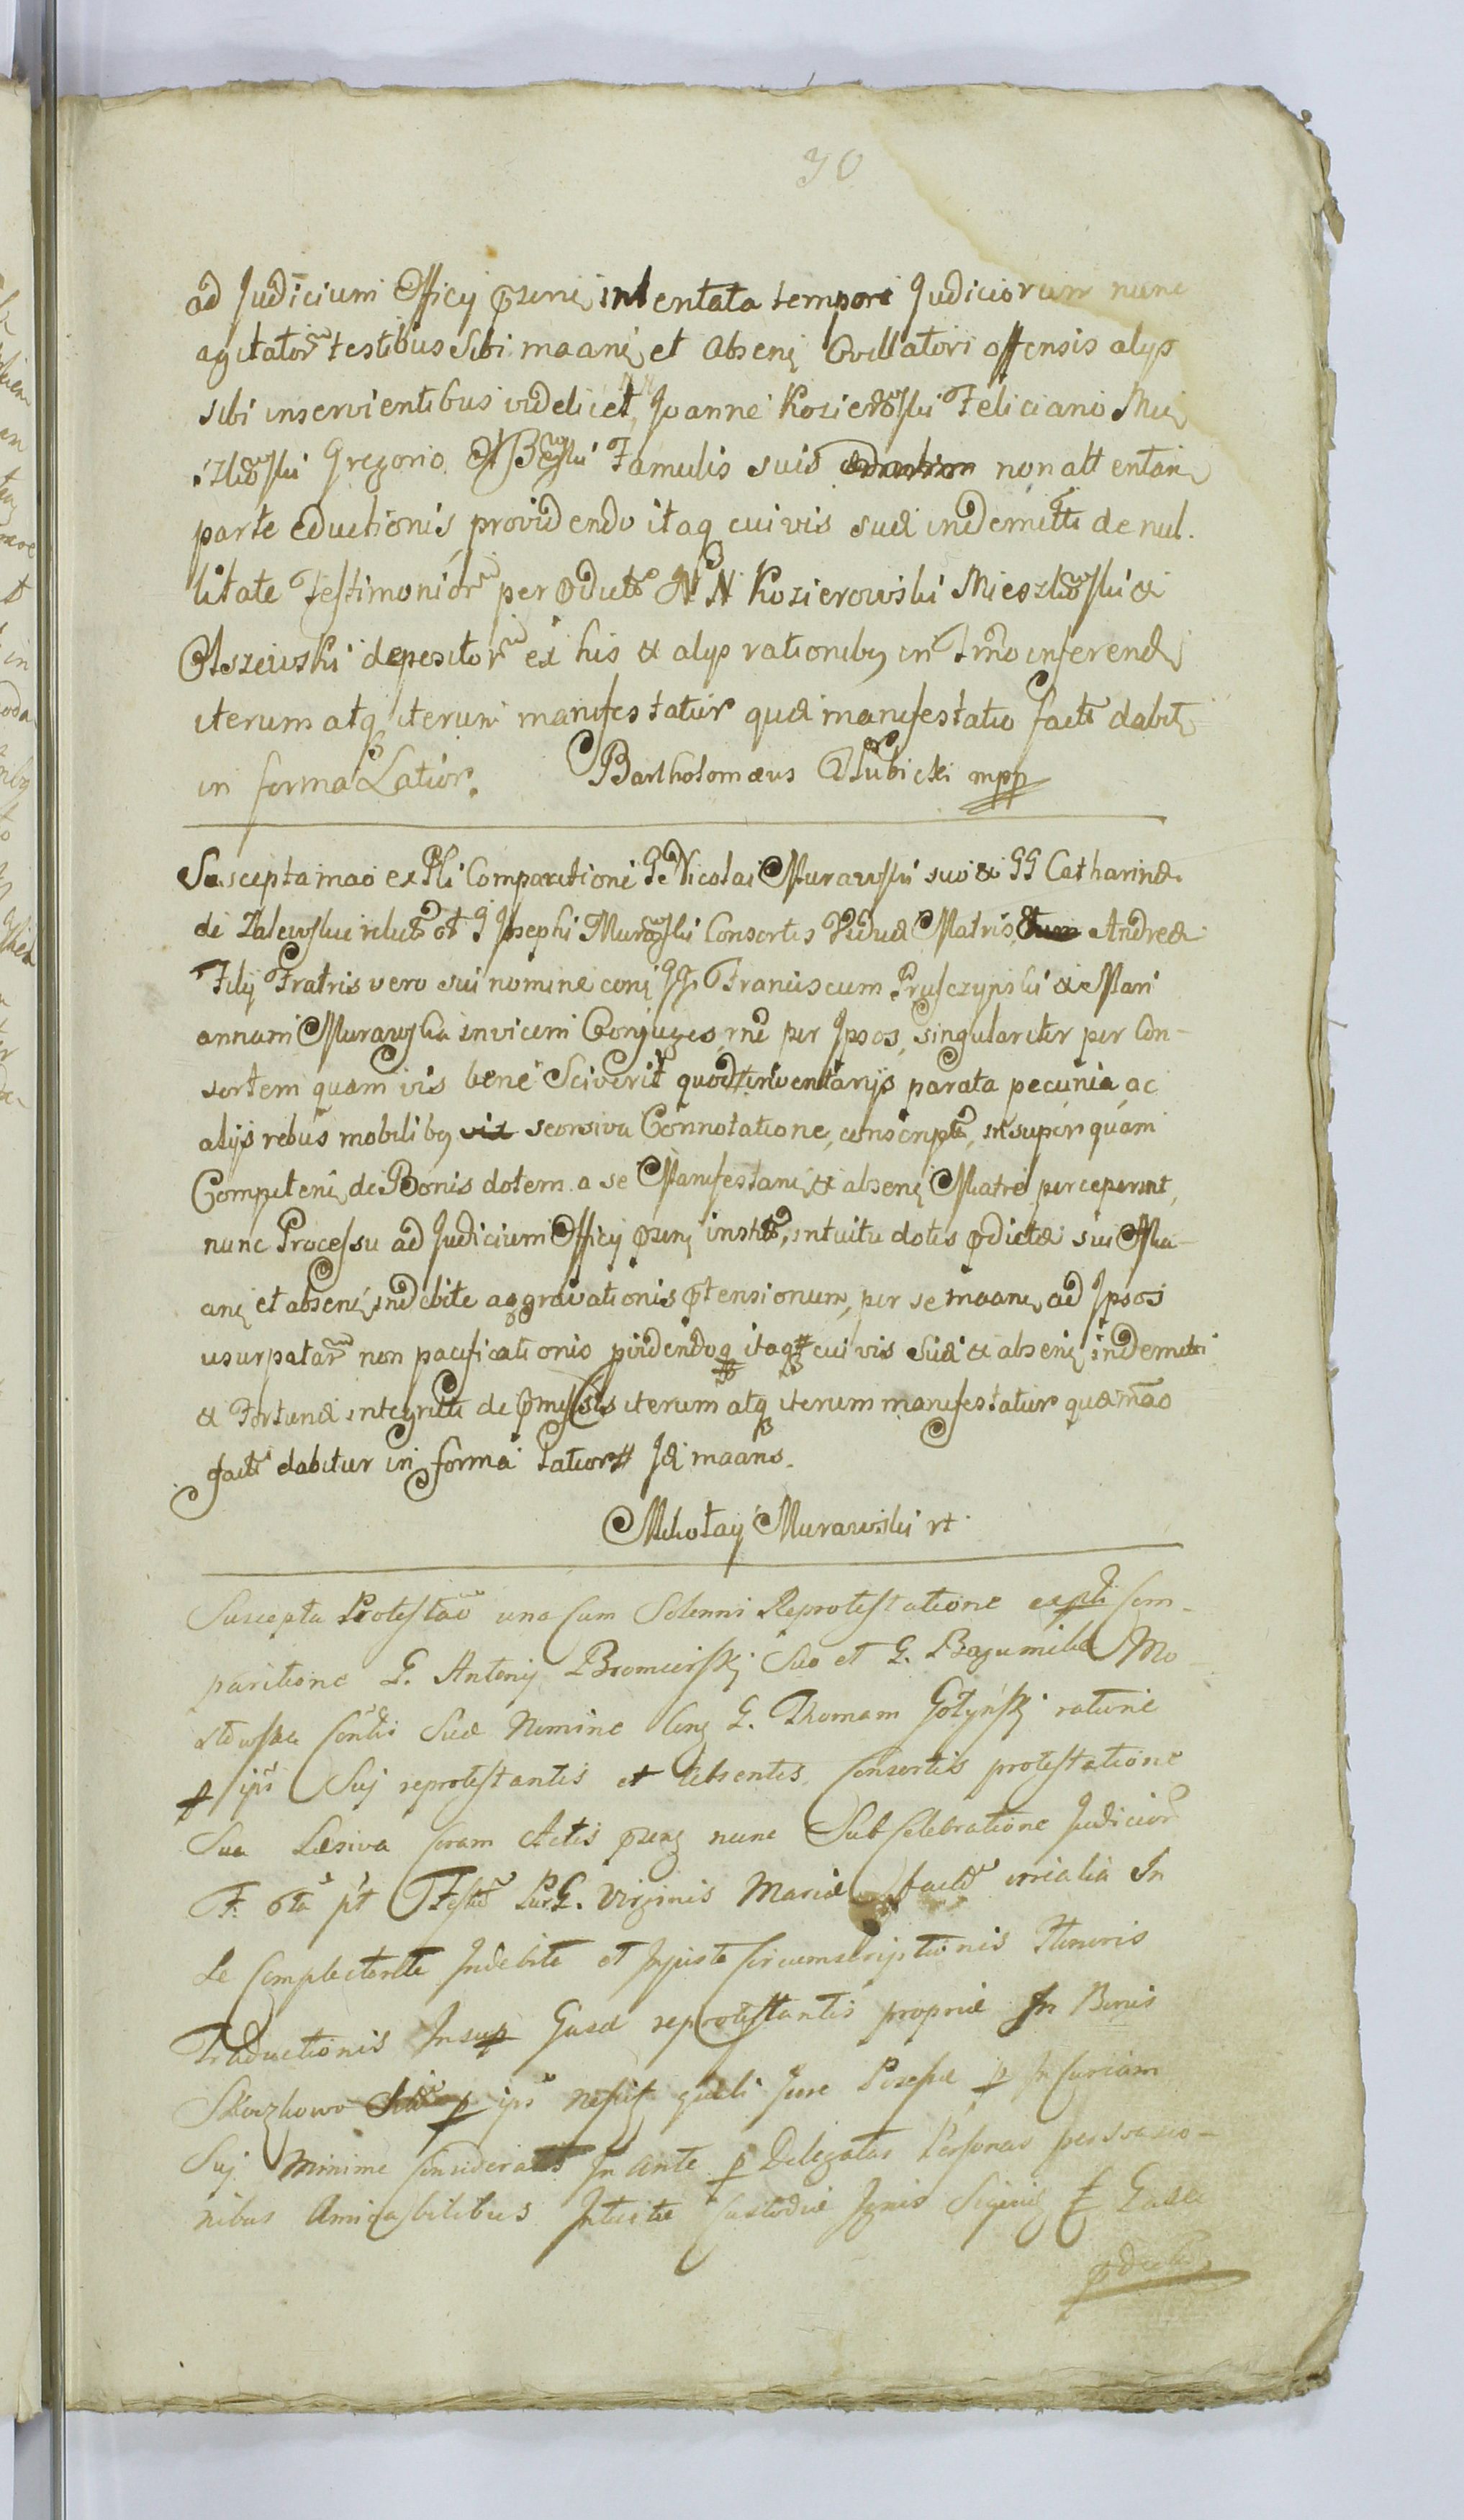 30
ad Judicium Officij pzens intentata tempore Judiciorum nunc
agitator testibus sibi maanti et absenti Quellatori offensis alys
sibi inservientibus videlicet Joanne Kozierowski Feliciano Mie
szkowski Gregorio Famulis suis non attentan
parte eductionis, providendo itaq cuivis suæ indemtti de nul.
litate Testimonior per pductos NN Kozierowski Mieszkowski &
Olszewski depositor ex his & alys rationibq in Trmo inferend
iterum atq iterum manifestatur quæ manifestatio facta dabit
in forma Latior. Bartholomæus Dłubicki mpp
Suscepta mao ex Psli Comparitione G Nicolai Murawski suo & GG Catharinæ
de Zalewskie relictæ olt G Josephi Murawski Consortis Viduæ Matris, Andreæ
Filij Fratris vero sui nomine con GG Franciscum Prusczynski & Mari
annam Murawska invicem Conjuges, rne per Ipsos, singulariter per Con-
sortem quam vis bene Sciverit quod inventarijs parata pecunia, ac
alijs rebus mobilibq seorsiva Connotatione, conscriptis, insuper quam
Competen de Bonis dotem a se Manifestan & absen Matre perceperint,
nunc Processu ad Judicium Officij pzens instit, intuitu dotis pdictæ sui Ma-
an et absen, indebite aggravationis ptensionum, per se maan, ad Ipsos
usurpatar non pacificationis pvidendoq itaq cuivis Suæ & absen indemtti
& Fortunæ integritti de pmissis iterum atq iterum manifestatur quæ mao
facta dabitur in forma Latiori Id maans.
Mikołay Murawski rt
Suscepta Protestao una cum Solenni Reprotestatione expli Com-
paritione G. Antonij Bromirski Suo et G. Bogumilæ Mo
stowska Contis Suæ Nomine Con G. Thomam Gołynski ratione
p ips Suj reprotestantis et Absentis Consortis protestatione
Sua Læsiva Coram Actis pzens nunc Sub Celebratione Judicior
F. 6ta pt Festu Pur. Virginis Mariæ facta In
Se Complectente Indebite et Injuste Circumscriptionis Itineris
Traductionis Insup reprotestantis propriæ In Bonis
p ips Jure p In Curiam
Suj Minime Considerat In ante p Delegatas Personas persvasio-
nibus Amicabilibus Intuitu Custodiæ Ignis